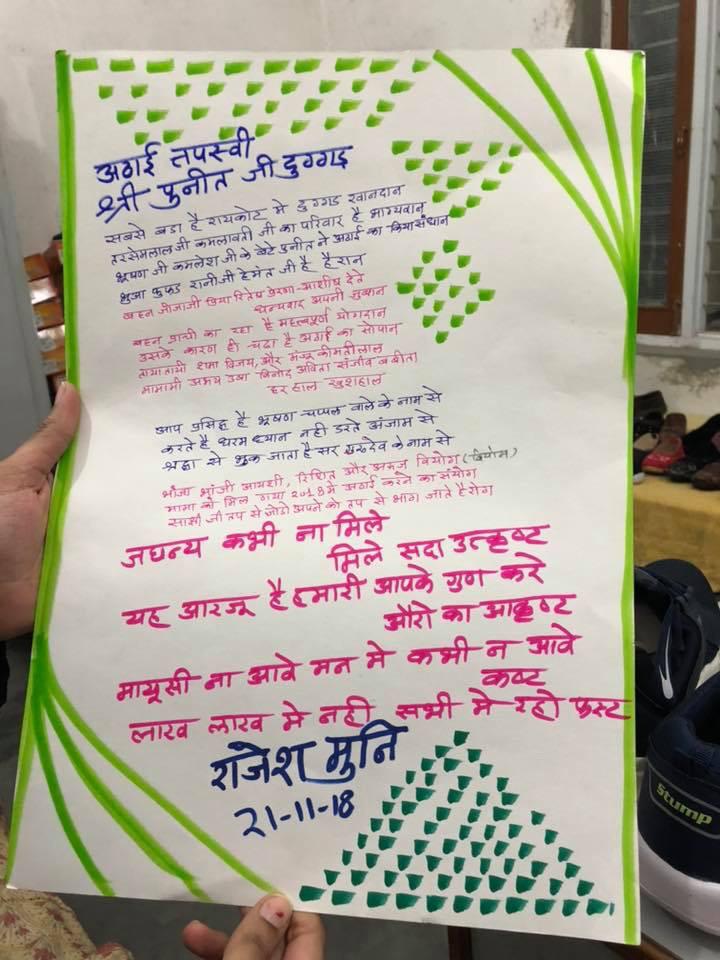 अठाई तपस्वी
श्री पुनीत जी दुग्गड़
सबसे बडा है रायकोट मे दुग्गड खानदान
तरसेमलाल जी कमलावती जी का परिवार है भाग्यवान
भूषण जी कमलेश जी के बेटे पुनीत ने अठाई का किया संधान
भुआ फुफड रानी जी हेमंत जी है हैरान
बहन जीजाजी प्रिया रितेश प्रेरणा आशीष देते
धन्यवाद अपनी जुबान
बहन प्राची का रहा है महत्वपूर्ण योगदान
उसके कारण ही चढा है अठाई का सोपान
ताया तायी शमा विजय, और मंजू कीमतीलाल
मामामी अभय उषा विनोद अविता संजीव बबीता
हर हाल खुशहाल
आप प्रसिद्ध है भूषण चप्पल वाले के नाम से
करते है धरम ध्यान नही डरते अंजाम से
श्रद्धा से झुक जाता है सर गुरुदेव के नाम से
भांजा भांजी आयशी, रिशित और वियोग
मामा को मिल गया 2018 मे अठाई करने का संयोग
जी तप से जोडो अपने को तप से भाग जाते है रोग
जघन्य कभी ना मिले
मिले सदा उत्कृष्ट
यह आरजू है हमारी आपके गुण करे
औरो का आकृष्ट
मायूसी ना आवे मन मे कभी न आवे
कष्ट
लाख लाख मे नही सभी मे रहो फस्ट
राजेश मुनि
21-11-18
Stump